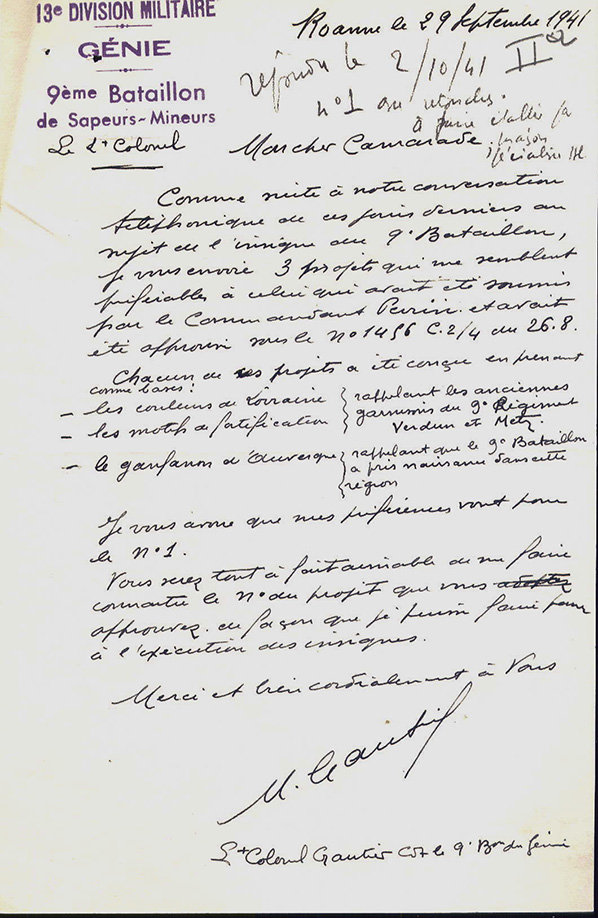 13e DIVISION MILITAIRE
GÉNIE
9ème Bataillon
de Sapeurs-Mineurs
Le Lt Colonel
Roanne le 29 Septembre 1941
répondu le 2/10/41 II
n°1 ou retouches
à faire établir par
maçon
spécialisé
Mon cher Camarade
Comme suite à notre conversation
téléphonique de ces jours derniers au
sujet de l'insigne du 9e Bataillon,
je vous envoie 3 projets qui me semblent
préférables à celui qui avait été soumis
par le Commandant Perrin et avait
été approuvé sous le N° 1456 C.2/4 du 26.8.
Chacun de ces projets a été conçu en prenant
comme bases :
- les couleurs de Lorraine
- les motifs de fortification
rappelant les anciennes
garnisons du 9e Régiment
Verdun et Metz.
- le gonfanon d'Auvergne
rappelant que le 9e Bataillon
a pris naissance dans cette
région
Je vous avoue que mes préférences vont pour
le N°1.
Vous serez tout à fait aimable de me faire
connaître le N° du projet que vous
approuvez de façon que je puisse faire
à l'exécution des insignes.
Merci et bien cordialement à Vous
M. Gautier
Lt Colonel Gautier Cdt le 9e Bon du Génie